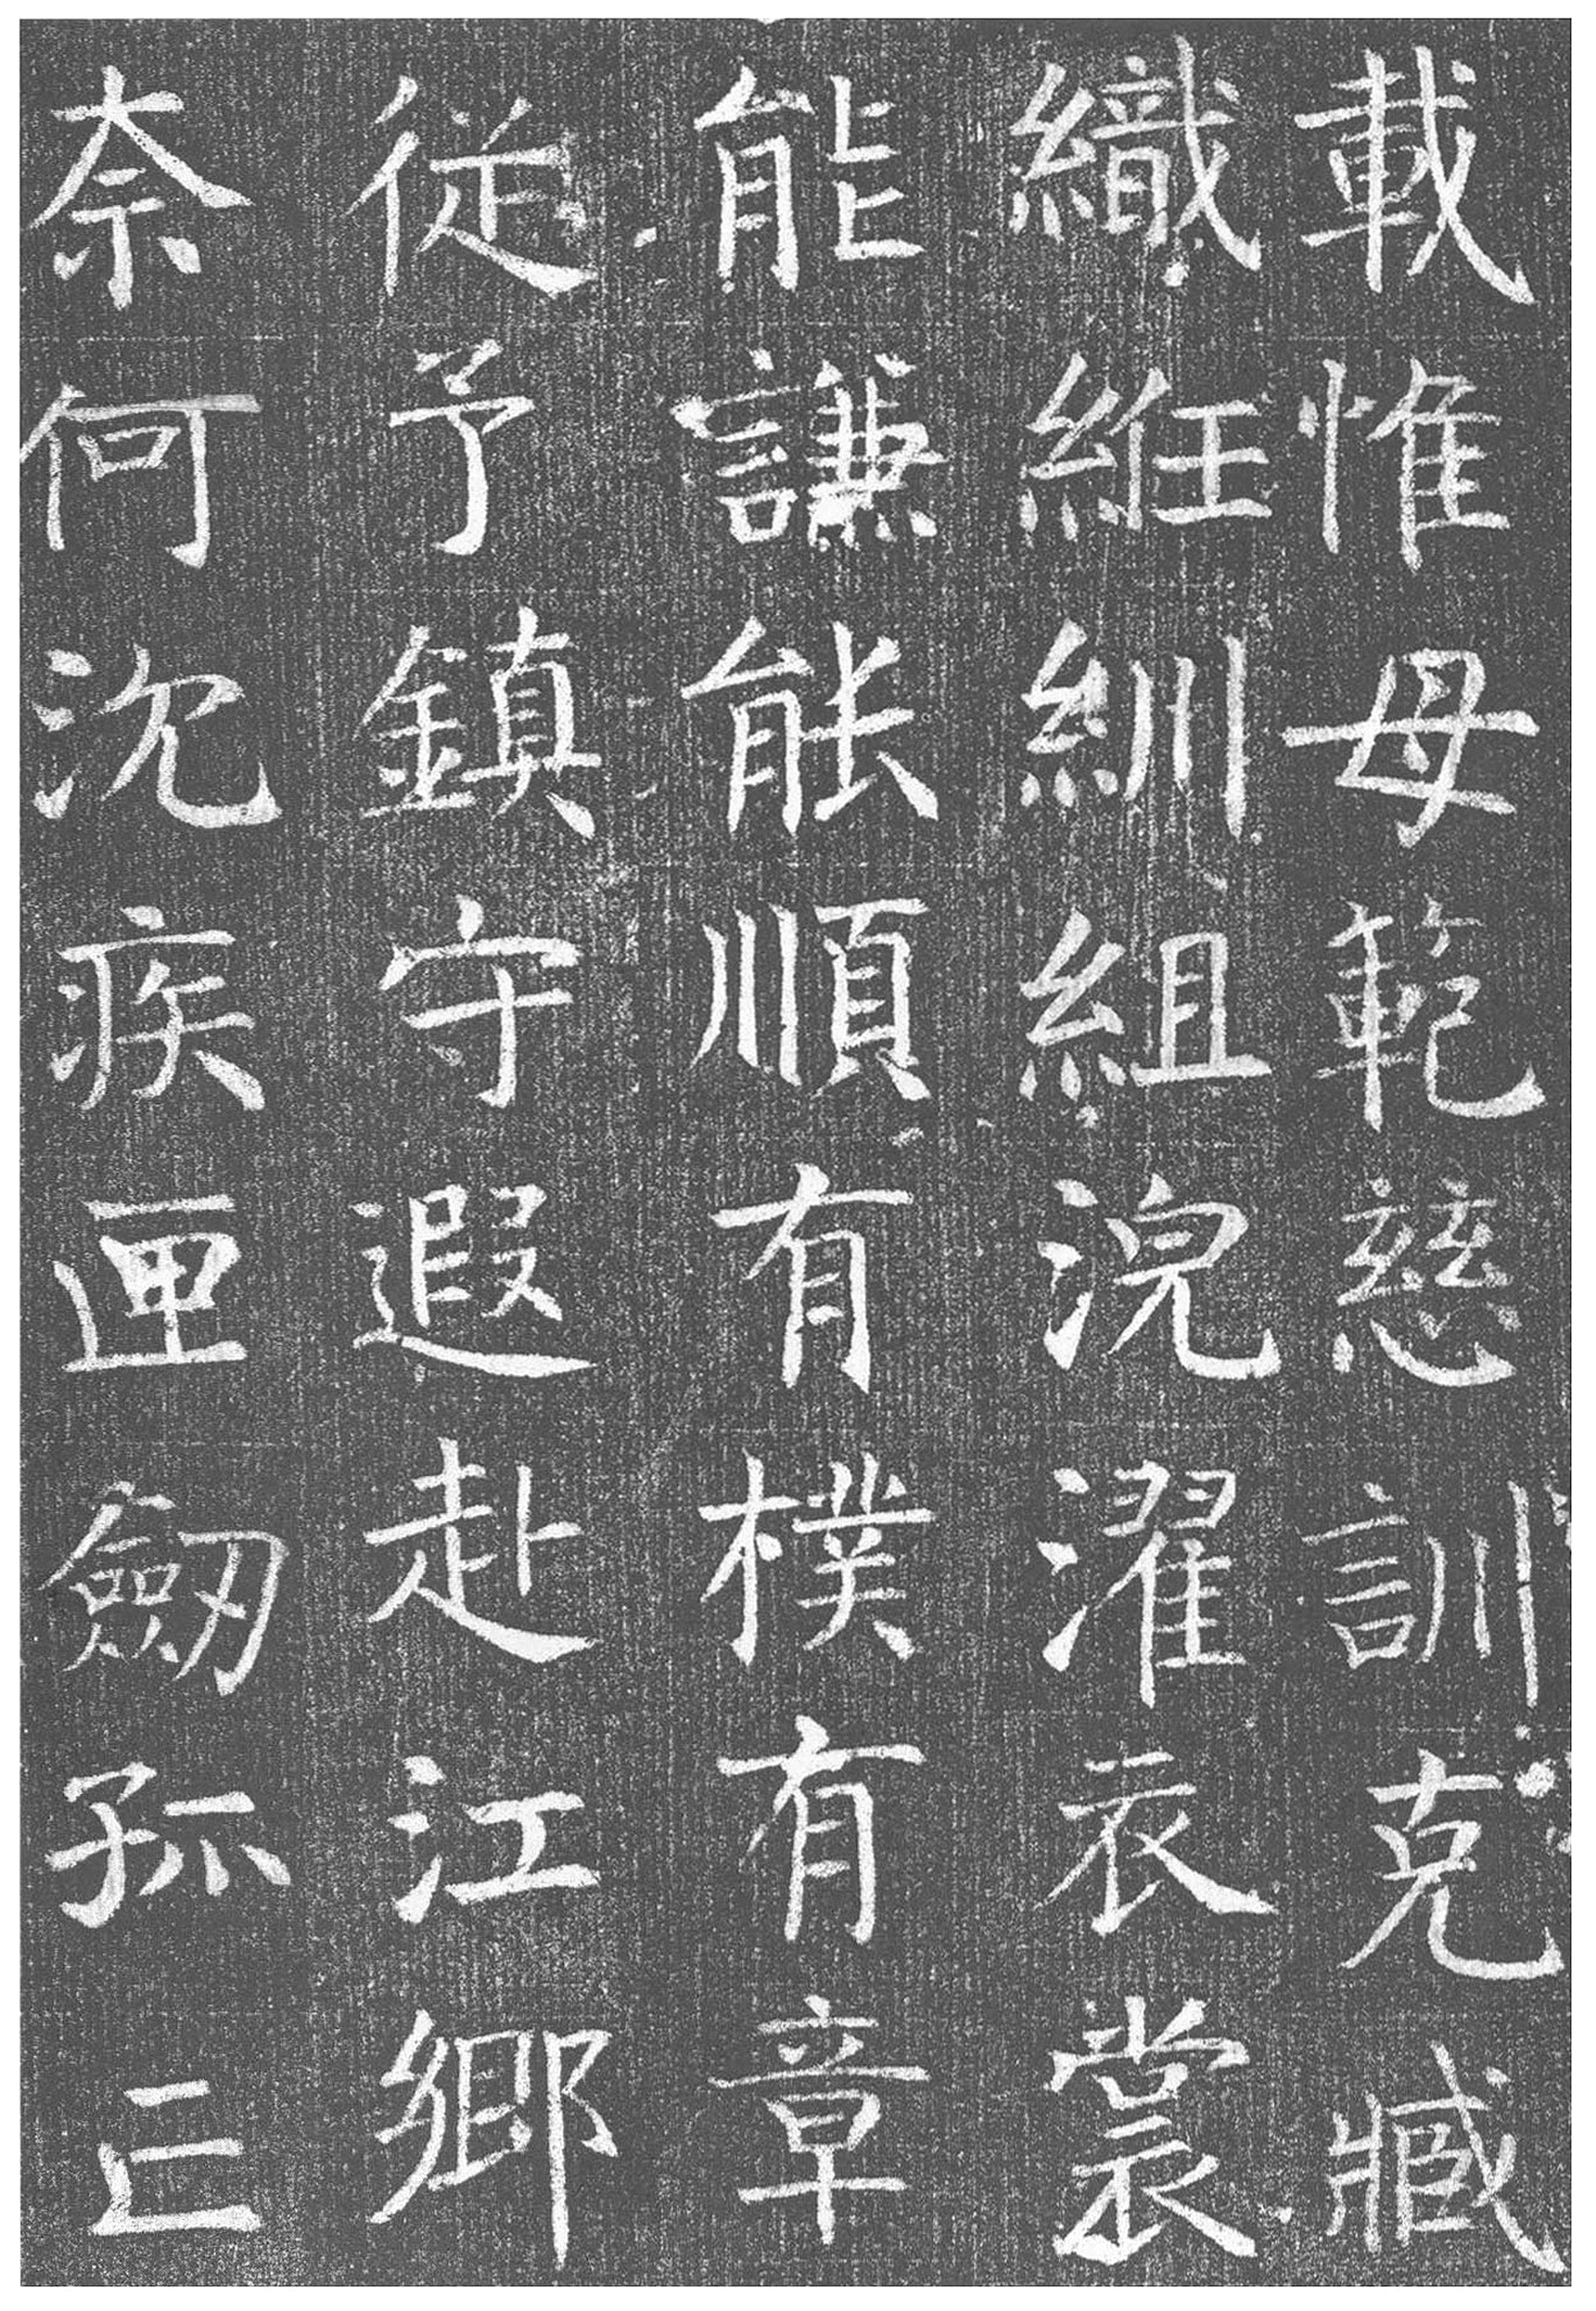 載惟母範慈訓克臧
織絍紃組浣濯衣裳
能謙能順有樸有章
從予鎮守遐赴江鄉
奈何沈疾匣劒孤亡